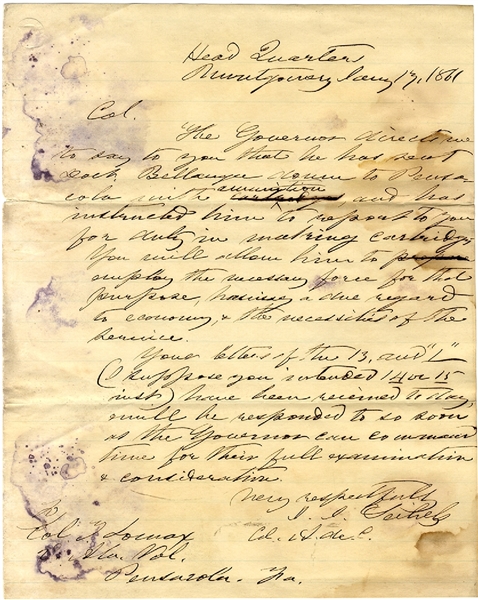 Head Quarters
Montgomery Jany 17, 1861
Col.
The Governor directs me
to say to you that he has sent
Doct. Bellanger down to Pensa-
cola with amunition and has
instructed him to report to you
for duty in making cartridges
You will allow him to
employ the necessary force for that
purpose, having a due regard
to economy, & the necessities of the
service.
Your letters of the 13, and "1"
(I suppose you intended 14 or 15
inst) have been received to day,
& will be responded to so soon
as the Governor can command
time for their full examination
& consideration.
Very respectfully
Col. A. de C.
Col T Lomax
Ala. Vol.
Pensacola. Fa.